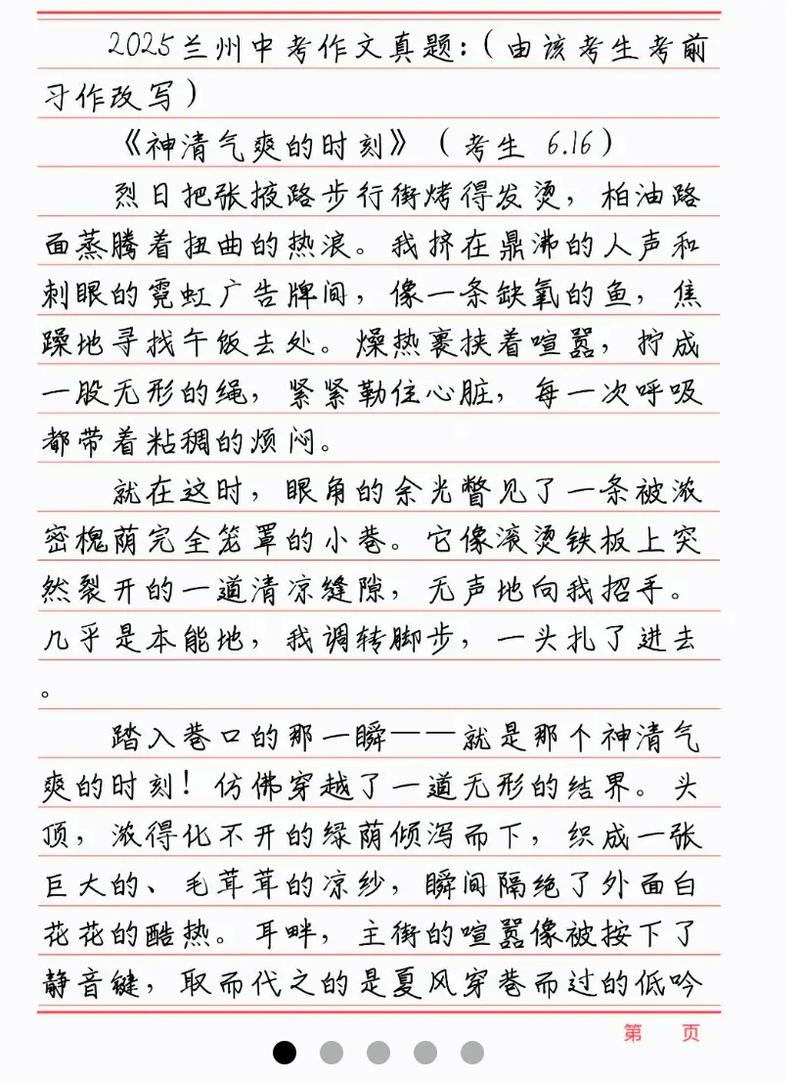 2025兰州中考作文真题:(由该考生考前
习作改写)
《神清气爽的时刻》(考生 6.16)
烈日把张掖路步行街烤得发烫,柏油路
面蒸腾着扭曲的热浪。我挤在鼎沸的人声和
刺眼的霓虹广告牌间,像一条缺氧的鱼,焦
躁地寻找午饭去处。燥热裹挟着喧嚣,拧成
一股无形的绳,紧紧勒住心脏,每一次呼吸
都带着粘稠的烦闷。
就在这时,眼角的余光瞥见了一条被浓
密槐荫完全笼罩的小巷。它像滚烫铁板上突
然裂开的一道清凉缝隙,无声地向我招手。
几乎是本能地,我调转脚步,一头扎了进去
。
踏入巷口的那一瞬——就是那个神清气
爽的时刻!仿佛穿越了一道无形的结界。头
顶,浓得化不开的绿荫倾泻而下,织成一张
巨大的、毛茸茸的凉纱,瞬间隔绝了外面白
花花的酷热。耳畔,主街的喧嚣像被按下了
静音键,取而代之的是夏风穿巷而过的低吟
第 页